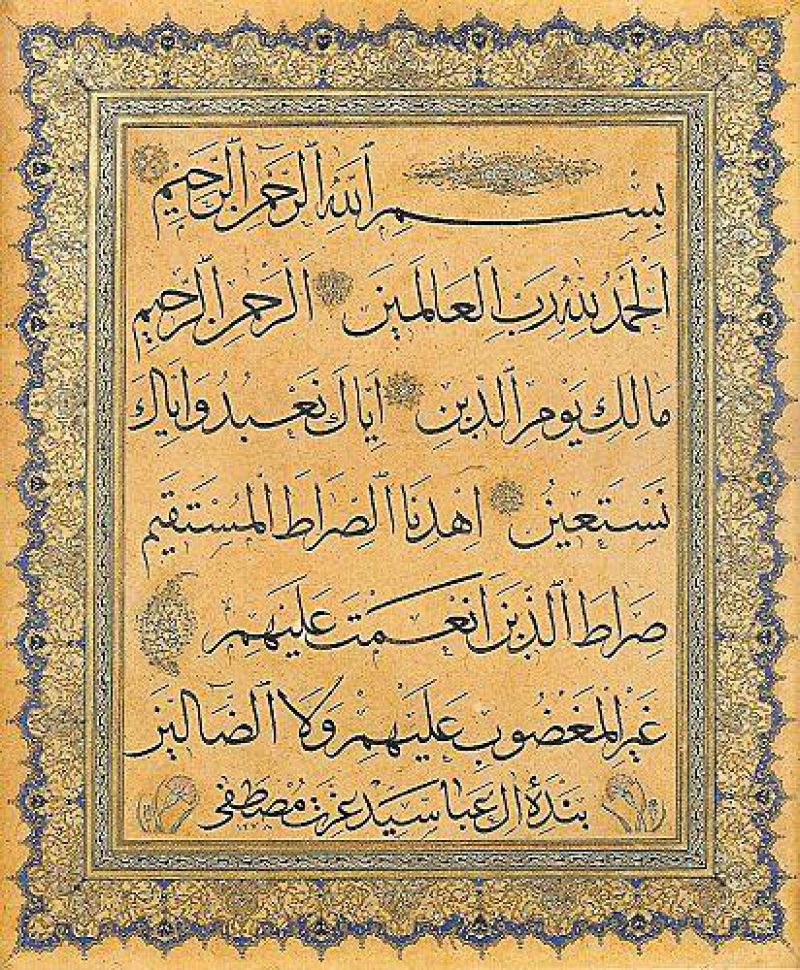 بِسْمِ ٱللَّهِ ٱلرَّحْمَنِ ٱلرَّحِيمِ
اَلْحَمْدُ لِلَّهِ رَبِّ ٱلْعَالَمِينَ اَلرَّحْمَنِ ٱلرَّحِيمِ
مَالِكِ يَوْمِ ٱلدِّينِ اِيَّاكَ نَعْبُدُ وَاِيَّاكَ
نَسْتَعِينُ اِهْدِنَا ٱلصِّرَاطَ ٱلْمُسْتَقِيمَ
صِرَاطَ ٱلَّذِينَ اَنْعَمْتَ عَلَيْهِمْ
غَيْرِ ٱلْمَغْضُوبِ عَلَيْهِمْ وَلَا ٱلضَّالِّينَ
بندهٔ آل عبا سيد عزت مصطفى